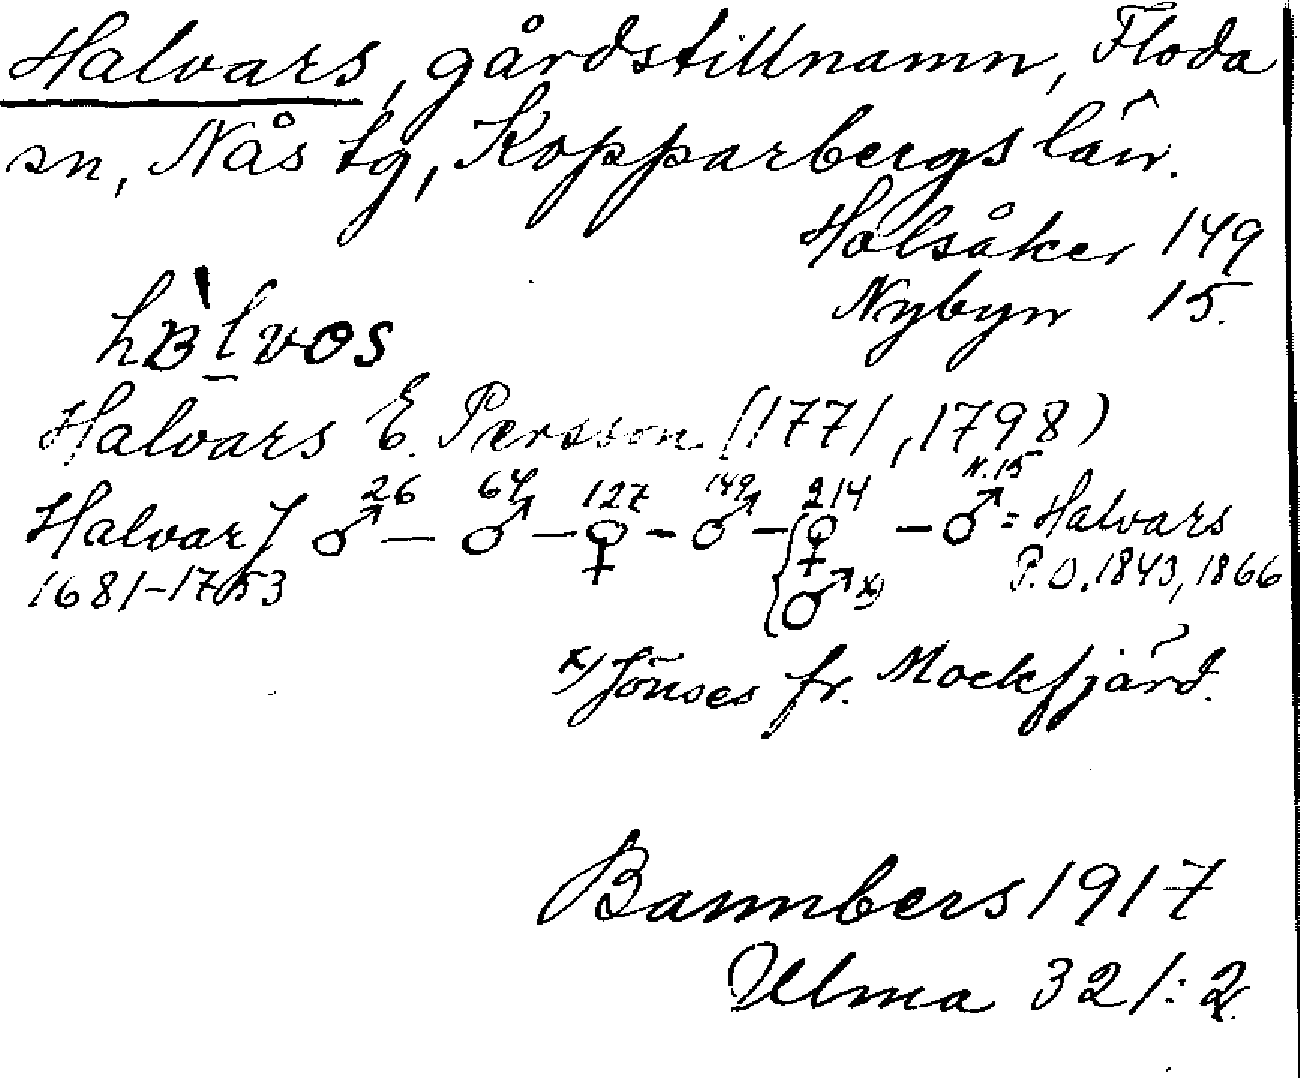 Halvars, gårdstillnamn, Floda
sn, Nås tg, Kopparbergs län.
Holsåker 149
Nybyn 15.
Halvars E. Persson (1771, 1798)
26 64 127 149 214 N. 15
Halvar J ♂ — ♂ — ♀ — ♂ — {♀ — ♂ = Halvars
1681–1753 ♂ x) P. O. 1843, 1866
x) Jönses fr. Mockfjärd.
Bannbers 1917
Ulma 321:2